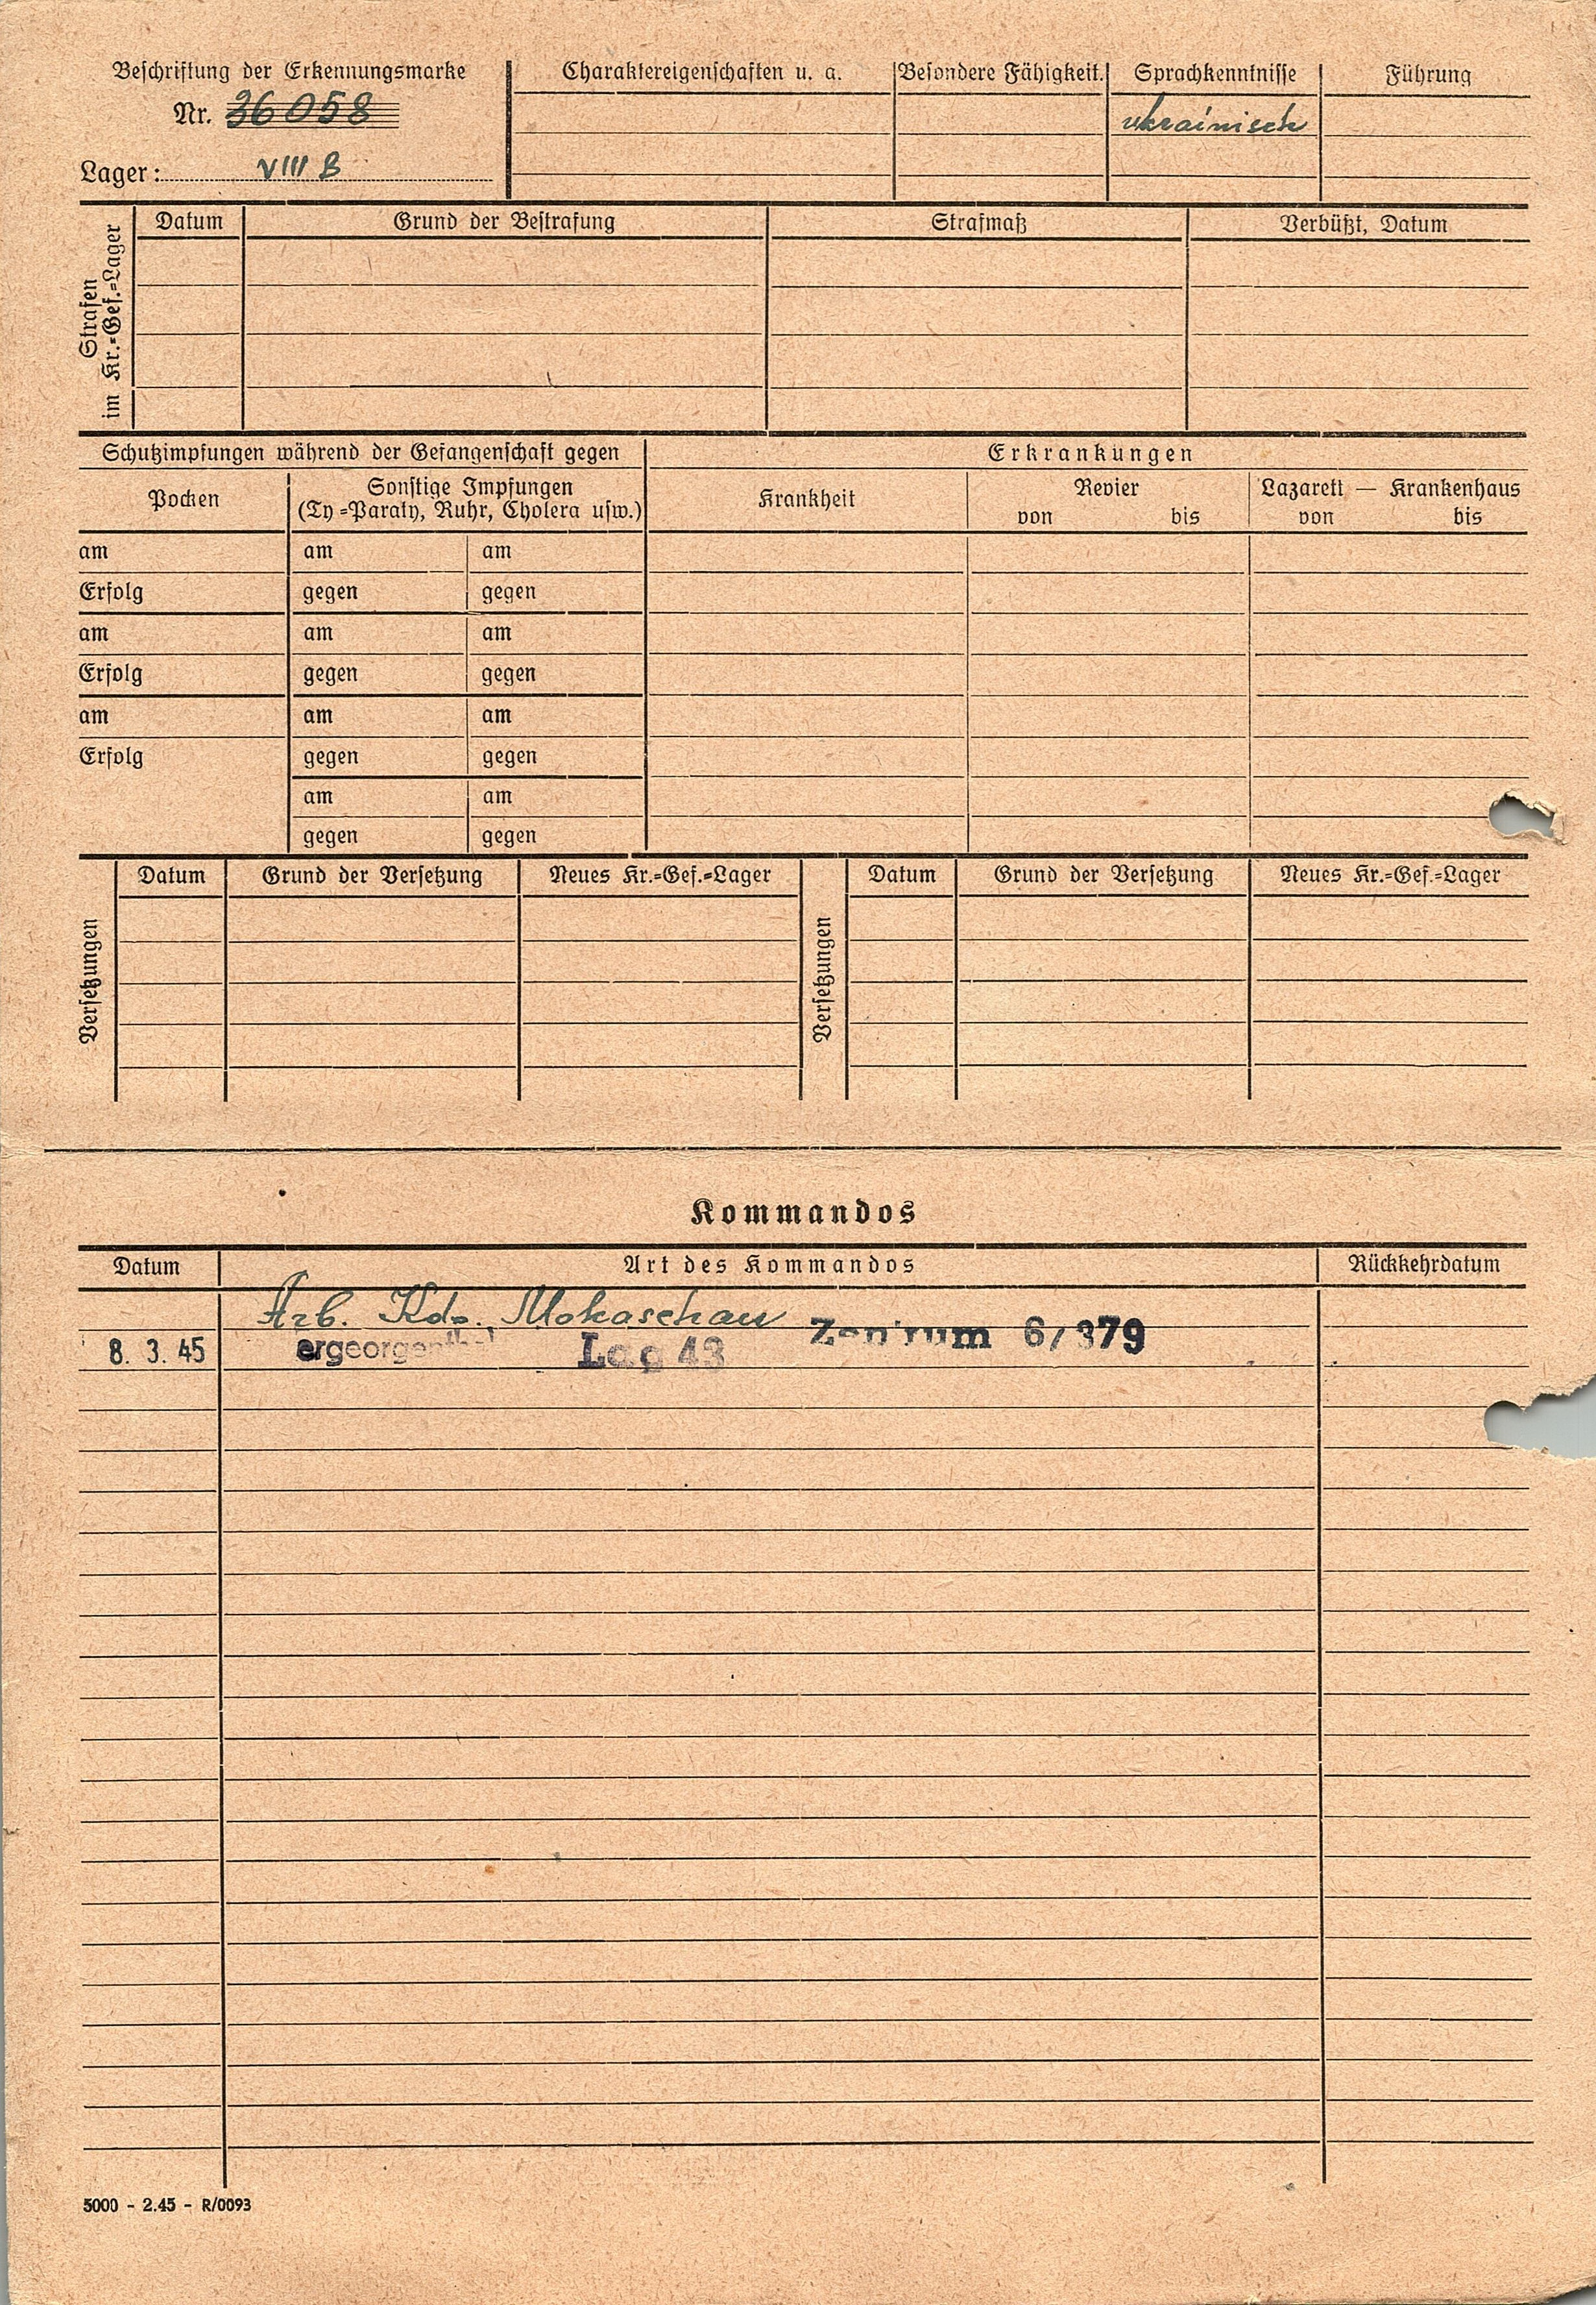 Beschriftung der Erkennungsmarke
Nr. 36058
Lager: VIII B
Charaktereigenschaften u. a.
Besondere Fähigkeit.
Sprachkenntnisse
ukrainisch
Führung
Strafen
im Kr.=Gef.=Lager
Datum Grund der Bestrafung Strafmaß Verbüßt, Datum
Schutzimpfungen während der Gefangenschaft gegen
Erkrankungen
Pocken
Sonstige Impfungen
(Ty=Paraty, Ruhr, Cholera usw.)
Krankheit
Revier
von bis
Lazarett — Krankenhaus
von bis
am am am
Erfolg gegen gegen
am am am
Erfolg gegen gegen
am am am
Erfolg gegen gegen
am am
gegen gegen
Versetzungen
Datum Grund der Versetzung Neues Kr.=Gef.=Lager
Versetzungen
Datum Grund der Versetzung Neues Kr.=Gef.=Lager
Kommandos
Datum Art des Kommandos Rückkehrdatum
Arb. Kdo. Mokaschau Zentrum 6/379
8. 3. 45 Lag 43
5000 - 2.45 - R/0093